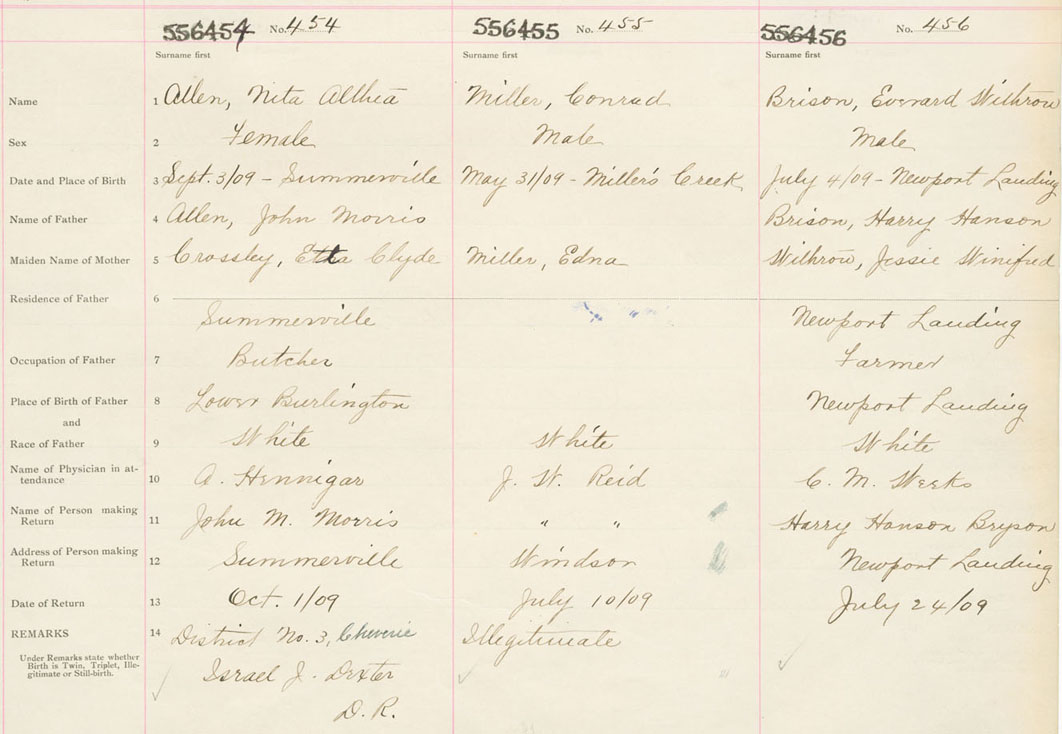 556454 No. 454 556455 No. 455 556456 No. 456
Surname first Surname first Surname first
Name 1 Allen, Nita Althea Miller, Conrad Brison, Everard Withrow
Sex 2 Female Male Male
Date and Place of Birth 3 Sept. 3/09 - Summerville May 31/09 - Miller's Creek July 4/09 - Newport Landing
Name of Father 4 Allen, John Morris Brison, Harry Hanson
Maiden Name of Mother 5 Crossley, Etta Clyde Miller, Edna Withrow, Jessie Winifred
Residence of Father 6
Summerville Newport Landing
Occupation of Father 7 Butcher Farmer
Place of Birth of Father 8 Lower Burlington Newport Landing
and
Race of Father 9 White White White
Name of Physician in at-
tendance 10 A. Hennigar J. W. Reid C. M. Weeks
Name of Person making
Return 11 John M. Morris " " Harry Hanson Bryson
Address of Person making
Return 12 Summerville Windsor Newport Landing
Date of Return 13 Oct. 1/09 July 10/09 July 24/09
REMARKS 14 District No. 3, Cheverie Illegitimate
Under Remarks state whether
Birth is Twin, Triplet, Ille-
gitimate or Still-birth.
Israel J. Dexter
D. R.